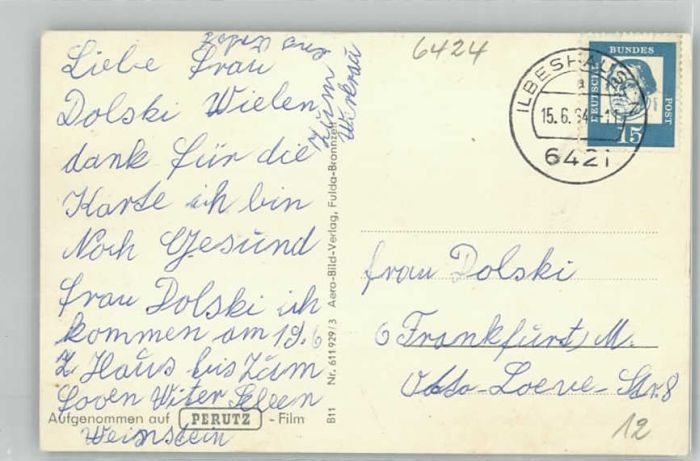 Liebe Frau
Dolski Wielen
dank für die
Karte ich bin
Noch Gesund
frau Dolski ich
kommen am 19.6
z Haus bis Züm
Witer
Weinstein
aus
Züm
Aufgenommen auf PERUTZ - Film
B11 Nr. 611929/3 Aero-Bild-Verlag, Fulda-Bronnzell
6424
ILBESHAUSEN
a
15.6.64
6421
DEUTSCHE
BUNDES
POST
15
frau Dolski
6 Frankfurt, M.
Otto-Loewe-Str. 8
12